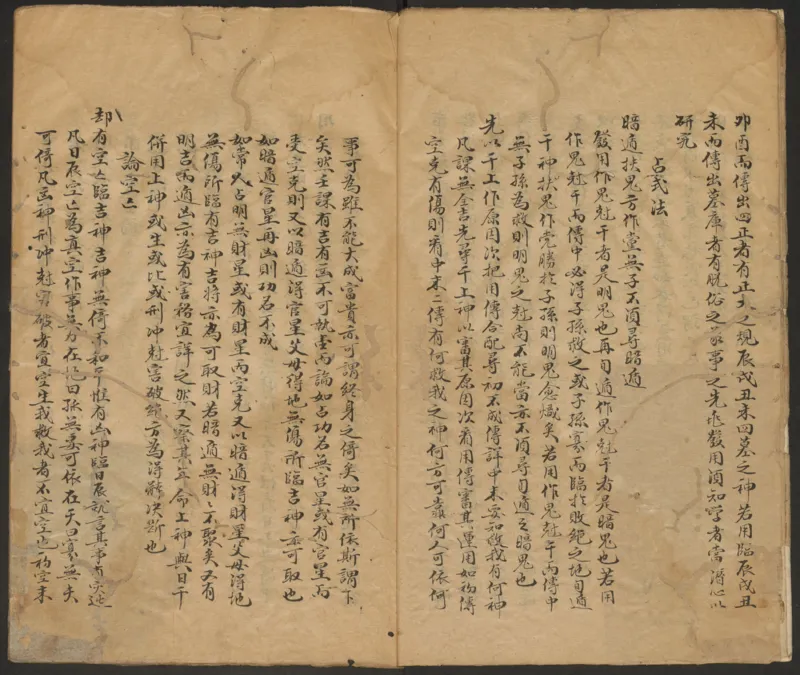 卯酉而傳出四正者有正大之規辰戌丑未四墓之神若用臨辰戌丑
未而傳出墓庫者有脫俗之象事之先兆發用須知學者當潛心以
研究
占式法
暗遁扶鬼方作黨無子不須尋暗遁
發用作鬼尅干者是明鬼也再旬遁作鬼尅干者是暗鬼也若用
作鬼尅干而傳中必得子孫救之或子孫寡而臨於敗絕之地旬遁
干神扶鬼作党勝於子孫則明鬼愈熾矣若用作鬼尅干而傳中
無子孫為救則明鬼之尅尚不能當亦不須尋旬遁之暗鬼也
先以干上作原因次把用傳合配尋初不成傳詳中末要知救我有何神
凡課無全吉先舉干上神以審其原因次看用傳審其運用如初傳
空尅有傷則看中末二傳有何救我之神何方可靠何人可依何
事可為雖不能大成富貴亦可謂終身之倚矣如無所依斯謂下
矣然壬課有吉有凶不可執而論如占功名無官星或有官星而
受空克則又以暗遁得官星父母得地無傷所臨吉神亦可取也
如暗遁官星再凶則功名不成
如常人占明無財星或有財星而空克又以暗遁得財星父母得地
無傷所臨有吉神吉將亦為可取財若暗遁無財財不聚矣又有
明吉而遁凶亦為有害務宜詳之然又察其年命上神與日干
併用上神或生或比或刑冲尅害破絕方為得訣決斷也
論空亡
却有空亡臨吉神吉神無倚不和平惟有凶神臨日辰就言其事有
凡日辰空亡為真空作事無力在地曰孤無委可依在天曰寡無夫
可倚凡凶神刑冲尅害破者宜空生我救我者不宜空也初空末